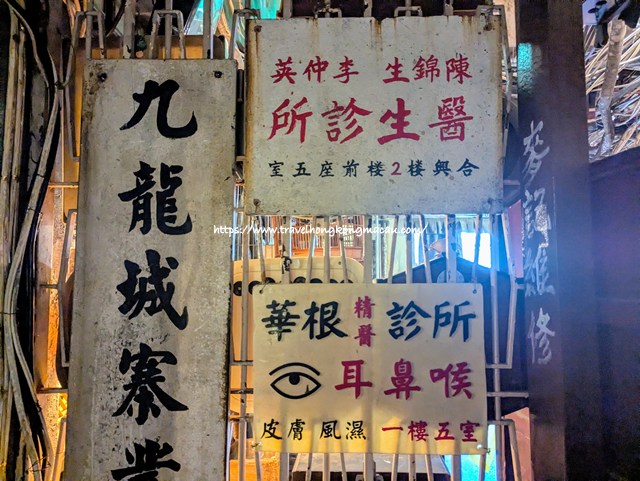 九龍城寨業
英仲李 生錦陳
所診生醫
室五座前樓2樓興合
https://www.travelhongkongmacau.com/
華根精醫診所
耳鼻喉
皮膚 風濕 一樓五室
麥記維修